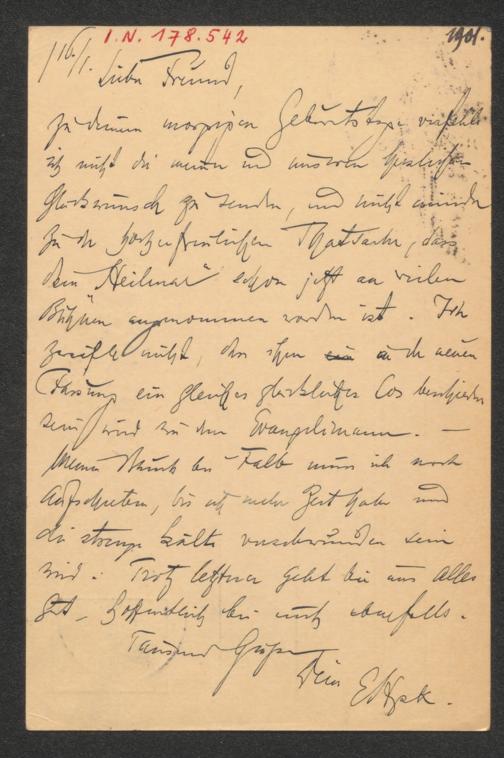 I.N. 178.542
1901.
16./1.
Lieber Freund,
zu deinem morgigen Geburtstage verfehle
ich nicht die meinen und unseren herzlichsten
Glückwunsch zu senden, und nicht minder
zu der hocherfreulichen Thatsache, dass
dein „Heilmar" schon jetzt an vielen
Bühnen angenommen worden ist. Ich
zweifle nicht, dass ihm in der neuen
Fassung ein gleiches glückliches Los beschieden
sein wird wie dem Evangelimann. —
Meinen Besuch bei Falb muss ich noch
aufschieben, bis ich mehr Zeit habe und
die strenge Kälte verschwunden sein
wird. Trotz letzterer geht bei uns Alles
gut – hoffentlich bei euch ebenfalls.
Tausend Grüße
Dein